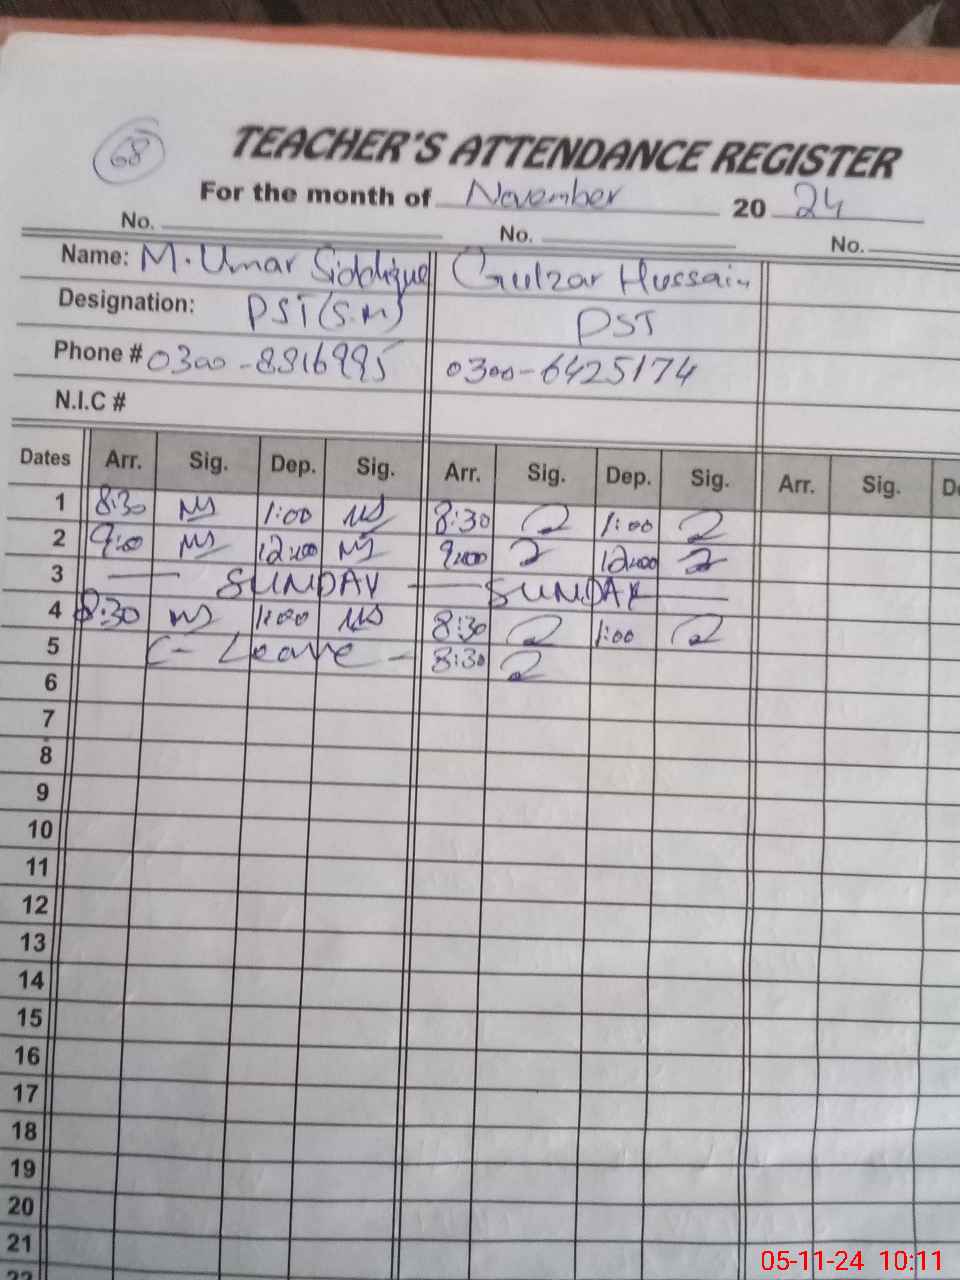 68
TEACHER'S ATTENDANCE REGISTER
For the month of November 2024
No. No. No.
Name: M. Umar Siddique Gulzar Hussain
Designation: PST (S.M) PST
Phone # 0300-8816995 0300-6425174
N.I.C #
Dates Arr. Sig. Dep. Sig. Arr. Sig. Dep. Sig. Arr. Sig.
1 8:30 1:00 8:30 1:00
2 9:00 12:00 9:00 12:00
3 SUNDAY SUNDAY
4 8:30 1:00 8:30 1:00
5 C- Leave - 8:30
6
7
8
9
10
11
12
13
14
15
16
17
18
19
20
21
22
05-11-24 10:11